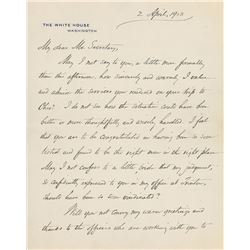 THE WHITE HOUSE
WASHINGTON
2 April, 1913
My dear Mr. Secretary,
May I not say to you, a little more formally
than this afternoon, how sincerely and warmly I value
and admire the services you rendered on your trip to
Ohio? I do not see how the situation could have been
better or more thoughtfully and wisely handled. I feel
that you are to be congratulated on having been so soon
tested and found to be the right man in the right place.
May I not confess to a little pride that my judgment,
so confidently expressed to you in my office at Trenton,
should have been so soon vindicated?
Will you not convey my warm greetings and
thanks to the officers who are working with you to